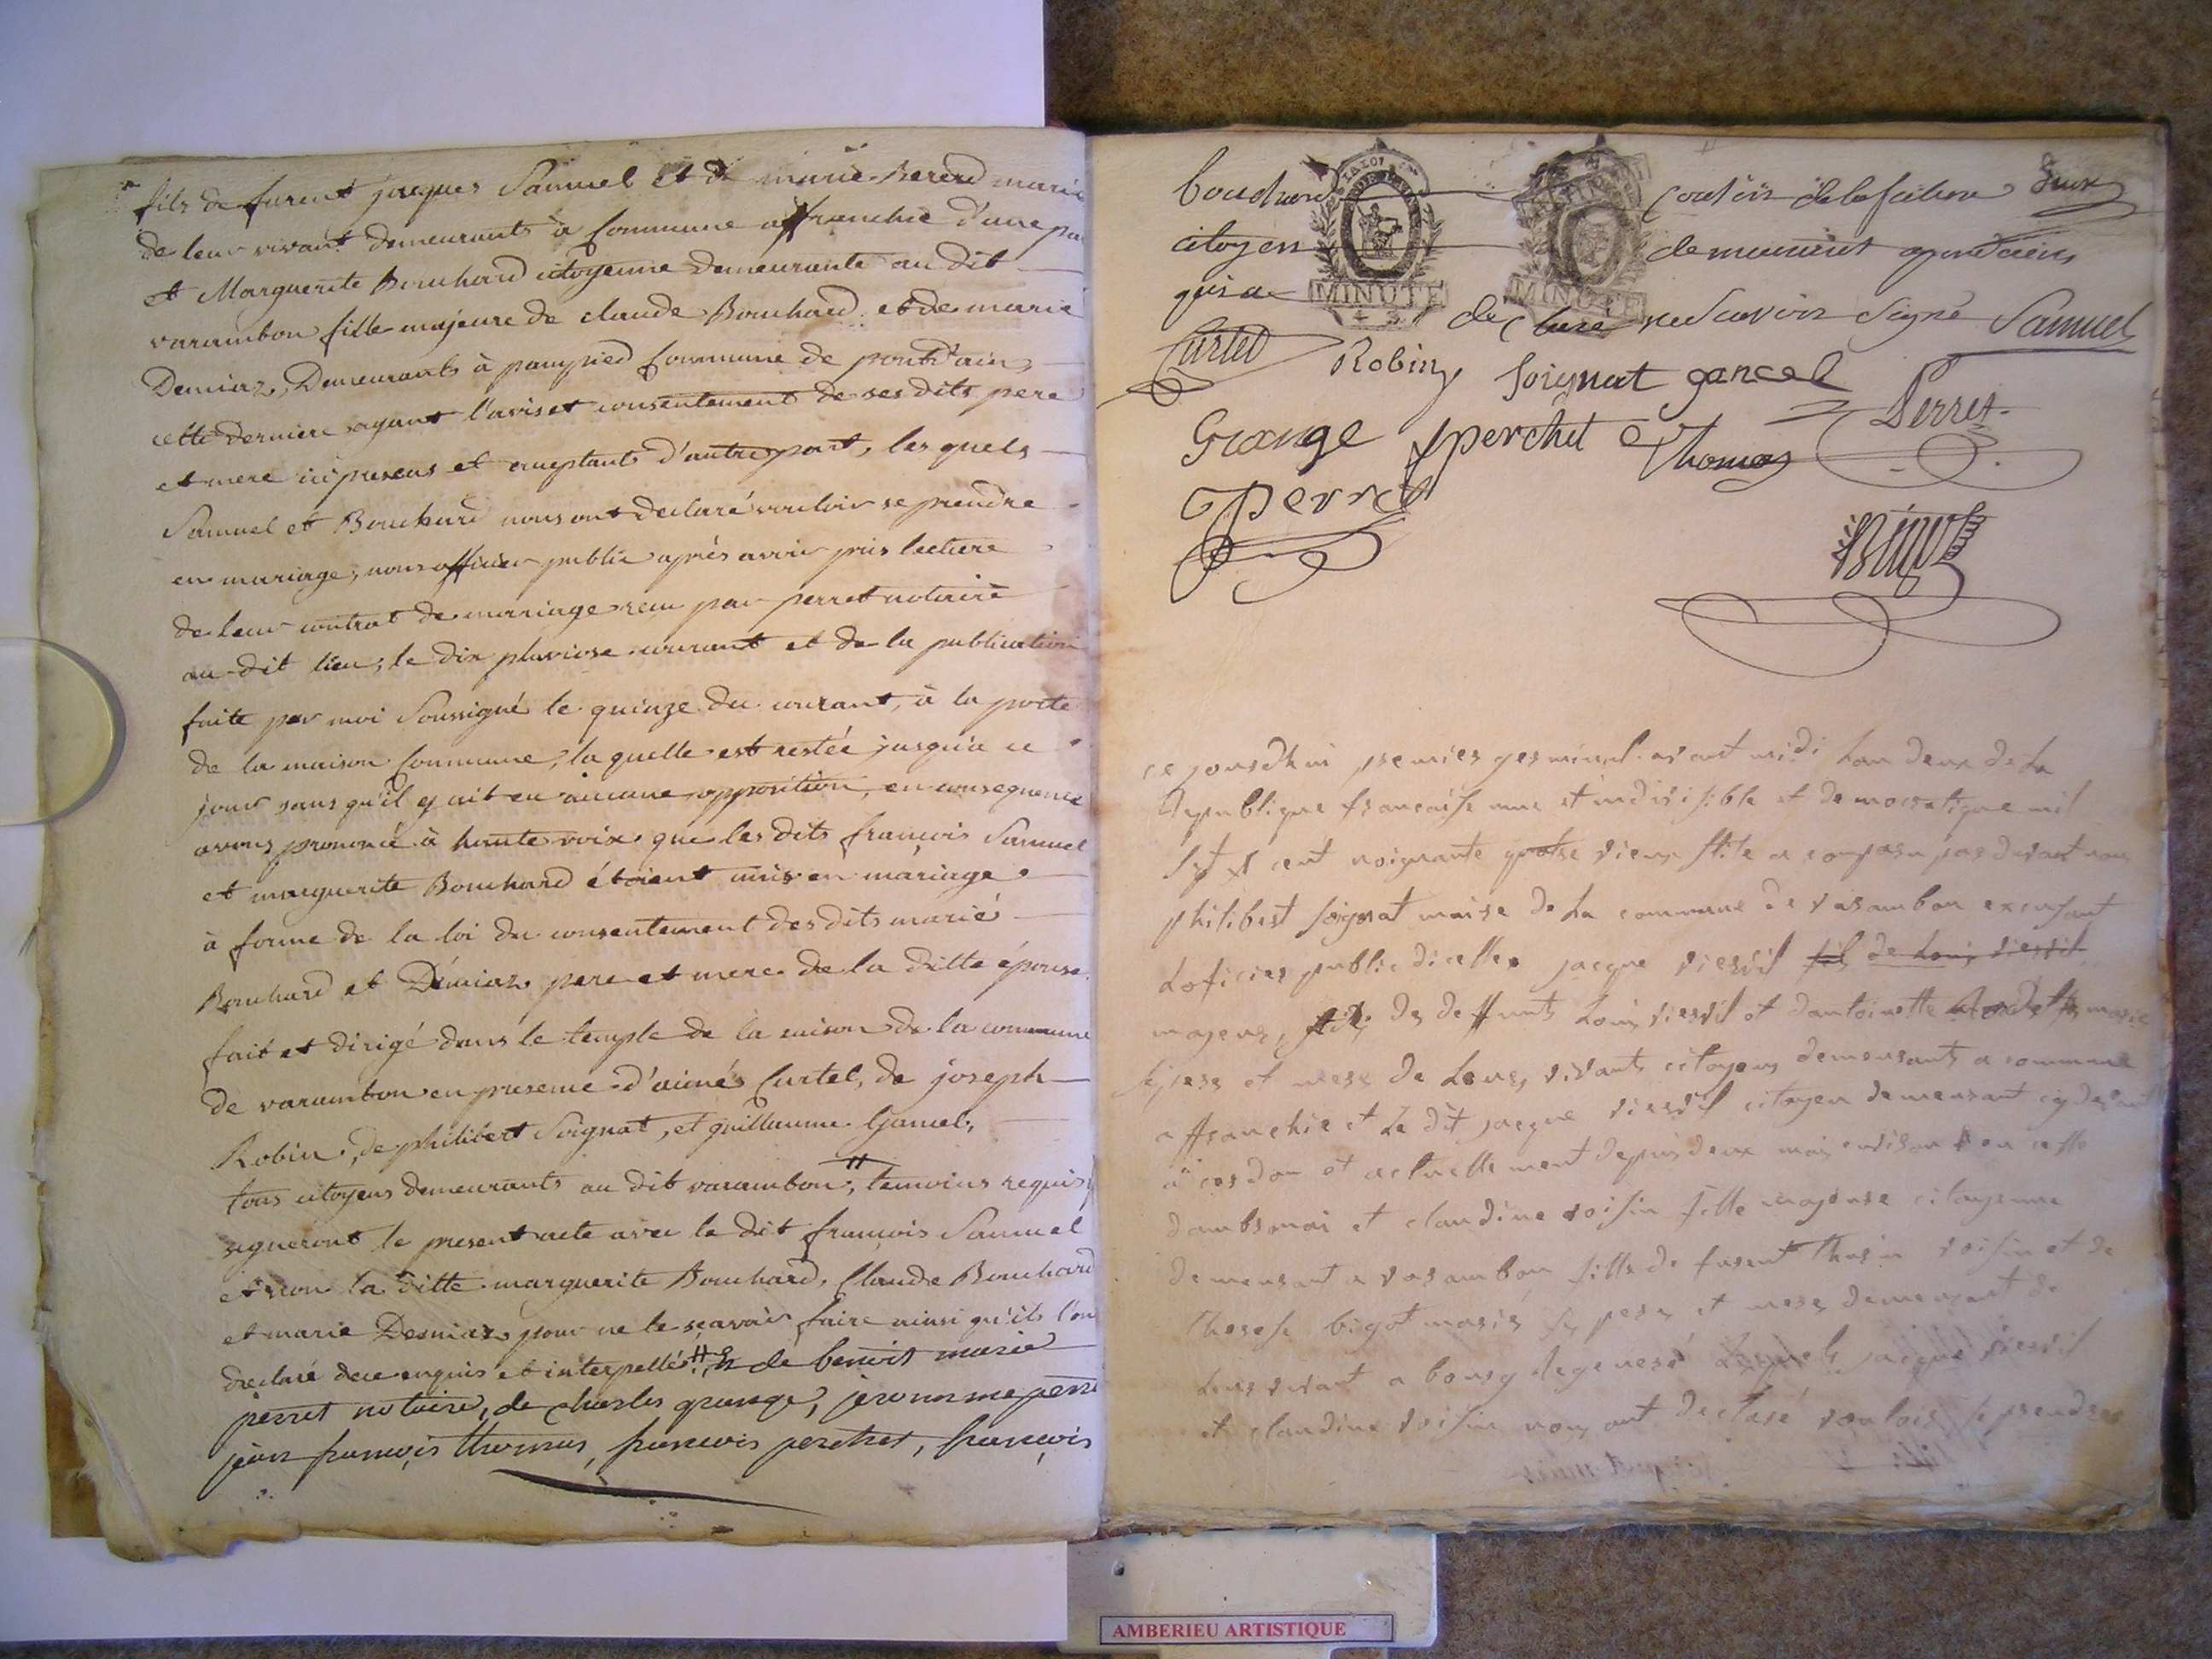 fils de furent jacques Samuel et de marie Bererd mariés
de leur vivant demeurants à Commune affranchie d'une pa
et Marguerite Bouchard citoyenne demeurante au dit
varambon fille majeure de claude Bouchard et de marie
Demiaz, Demeurants à pampied Commune de pontd'ain,
cette derniere ayant l'avis et consentement de ses dits pere
et mere ici presens et acceptants d'autre part, les quels
Samuel et Bouchard nous ont declaré vouloir se prendre
en mariage, nous officier public après avoir pris lecture
de leur contrat de mariage recu par perret notaire
au dit lieu, le dix pluviose courant et de la publication
faite par moi Soussigné le quinze du courant, à la porte
de la maison Commune, la quelle est restée jusqu'à ce
jour sans qu'il y ait eu aucune opposition, en consequence
avons prononcé à haute voix que les dits françois Samuel
et marguerite Bouchard étoient unis en mariage
à forme de la loi du consentement des dits marié
Bouchard et Démiaz pere et mere de la ditte épouse.
fait et dirigé dans le temple de la raison de la commune
de varambon en presence d'aimé Curtet, de joseph
Robin, de philibert Soignat, et guillaume Gancel,
tous citoyens demeurants au dit varambon, temoins requis
signeront le present acte avec le dit françois Samuel
et non la ditte marguerite Bouchard, Claude Bouchard
et marie Demiaz pour ne le sçavoir faire ainsi qu'ils l'on
declaré de ce enquis et interpellés de benoit marie
perret notaire, de charles grange, jeronnme perre
jean françois thomas, francois perchet, francois
bouchard cousin de la future Deux
citoyen demeurant apontdain,
MINUTE MINUTE
qui a déclaré ne Scavoir Signé Samuel
Curtet Robin Soignat gancel
Grange fperchet Thomas Perret
Perret
ce jourdhui premier germinal avant midi Lan deux de La
Republique francaise une et indivisible et democratique mil
Sept cent noinante quatre vieux stile a comparu par devant nous
philibert soignat maire de La commune de varambon exersant
Loficier public dicelle jacque viervil fil de Louis viervil
majeur, fils de deffunts Louis viervil et dantoinette marié
se pere et mere de Leurs vivants citoyens demeurants a commune
affranchie et Le dit jacque viervil citoyen demeurant cy devant
a cerdon et actuellement depuis deux mois environ en celle
dambronai et claudine voisin fille majeure citoyenne
demeurant a varambon fille de furent voisin et de
therese bigot mariés se pere et mere demeurant de
Leurs vivant a bourg Lesquels jacque viervil
et claudine voisin nous ont declaré vouloir se prendre